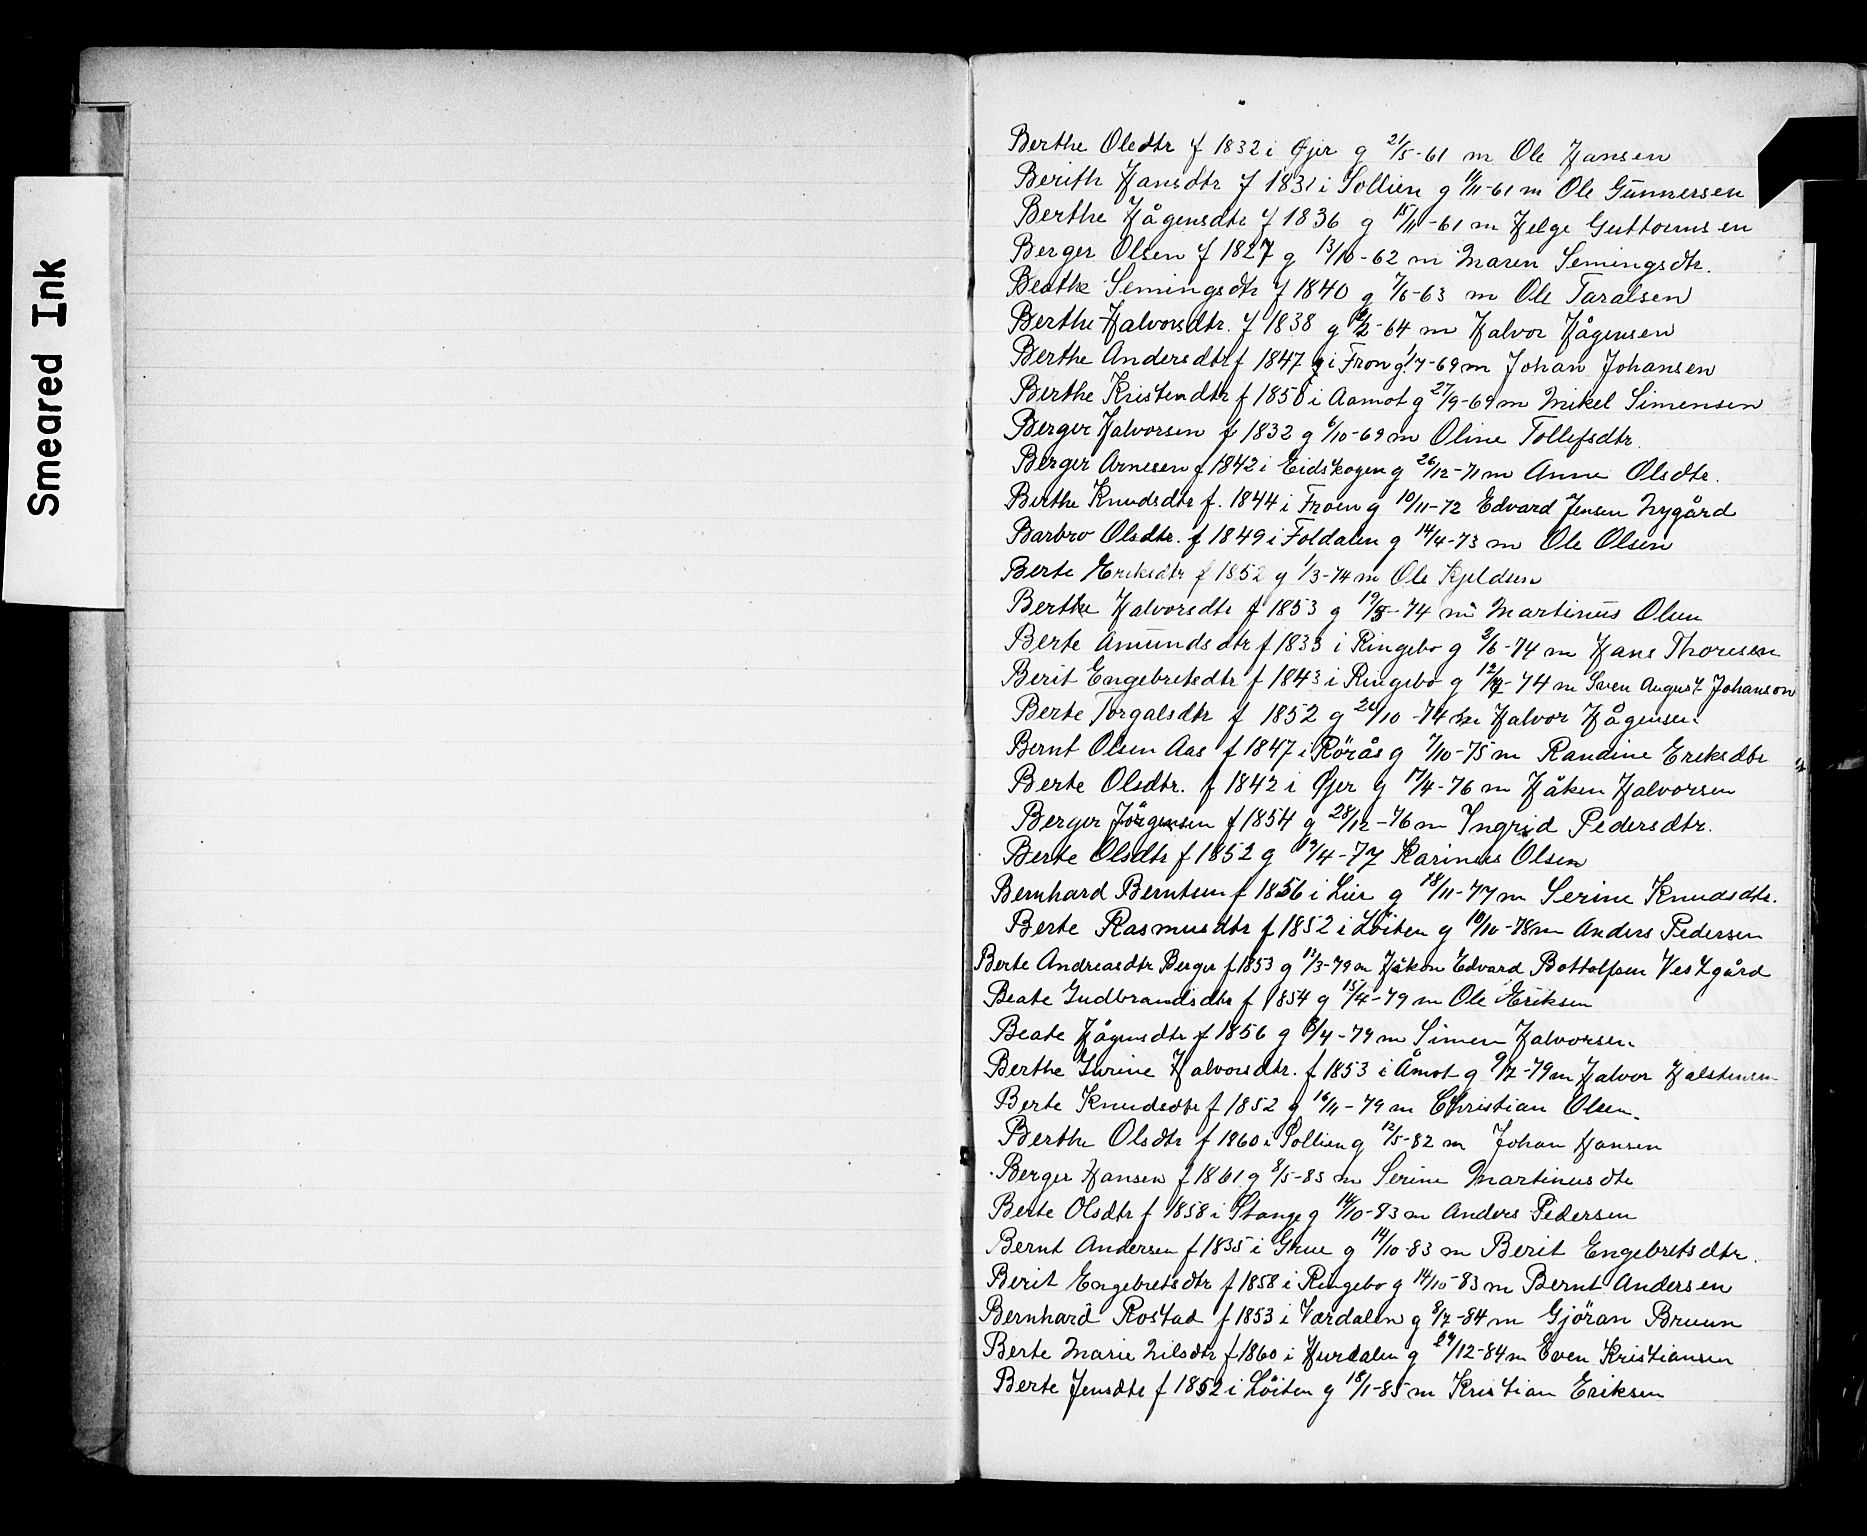 Smeared Ink
Berthe Oledtr f 1832 i Øjer g 21/5-61 m Ole Hansen
Berith Hansdtr f 1831 i Sollien g 11/11-61 m Ole Gunnersen
Berthe Hågensdtr f 1836 g 15/11-61 m Helge Guttormsen
Berger Olsen f 1827 g 13/10-62 m Maren Semingsdtr.
Beathe Semingsdtr f 1840 g 7/6-63 m Ole Taralsen
Berthe Halvorsdtr. f 1838 g /2-64 m Halvor Hågensen
Berthe Andersdtr f 1847 i Fron g 1/7-69 m Johan Johansen
Berthe Kristendtr f 1850 i Aamot g 27/9-69 m Mikel Simensen
Berger Halvorsen f 1832 g 6/10-69 m Oline Tollefsdtr.
Berger Arnesen f 1842 i Eidskogen g 26/12-71 m Anne Olsdtr.
Berthe Knudsdtr f. 1844 i Froen g 10/11-72 Edvard Jensen Nygård
Barbro Olsdtr. f 1849 i Foldalen g 14/4-73 m Ole Olsen
Berte Eriksdtr f 1852 g 1/3-74 m Ole Kjeldsen
Berthe Halvorsdtr f 1853 g 19/5-74 m Martinus Olsen
Berte Amundsdtr f 1833 i Ringebo g 2/6-74 m Hans Thoresen
Berit Engebretsdtr f 1843 i Ringebo g 12/7-74 m Sven August Johanson
Berte Torgalsdtr f 1852 g 26/10-74 m Halvor Hågensen.
Bernt Olsen Aas f 1847 i Rörås g 7/10-75 m Randine Eriksdtr
Berte Olsdtr. f 1842 i Øjer g 17/4-76 m Håken Halvorsen
Berger Jörgensen f 1854 g 28/12-76 m Ingrid Pedersdtr.
Berte Olsdtr f 1852 g 19/4-77 Karinus Olsen
Bernhard Berntsen f 1856 i Lier g 18/11-77 m Serine Knudsdtr.
Berte Rasmusdtr f 1852 i Löiten g 10/10-78 m Anders Pedersen
Berte Andreasdtr Berger f 1853 g 17/3-79 m Håkon Edvard Bottolfsen Vestgård
Beate Gudbrandsdtr f 1854 g 15/4-79 m Ole Eriksen
Beate Hågensdtr f 1856 g 8/4-79 m Simen Halvorsen.
Berthe Gurine Halvorsdtr. f 1853 i Åmot g 9/7-79 m Halvor Halstensen
Berte Knudsdtr f 1852 g 16/11-79 m Christian Olsen.
Berthe Olsdtr f 1860 i Sollien g 12/5-82 m Johan Hansen
Berger Hansen f 1861 g 8/5-83 m Serine Martinusdtr
Berte Olsdtr f 1858 i Stange g 14/10-83 m Anders Pedersen
Bernt Andersen f 1835 i Grue g 14/10-83 m Berit Engebretsdtr.
Berit Engebretsdtr f 1858 i Ringebo g 14/10-83 m Bernt Andersen
Bernhard Rostad f 1853 i Værdalen g 8/7-84 m Gjöran Bruun
Berte Marie Nilsdtr f 1860 i Hurdalen g 29/12-84 m Even Kristiansen
Berte Jensdtr f 1852 i Löiten g 18/1-85 m Kristian Eriksen